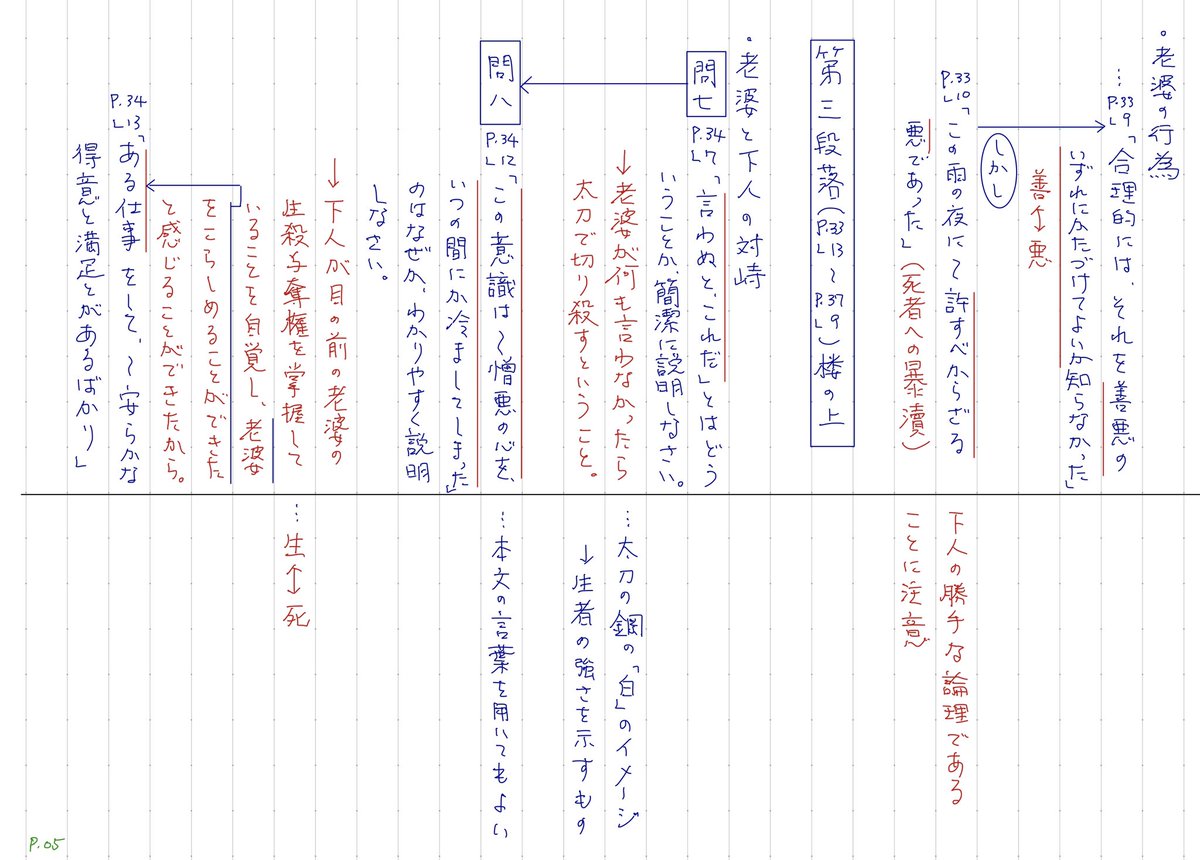 ・老婆の行為
…P.33 L9「合理的には、それを善悪の
いずれにかたづけてよいか知らなかった」
善↔悪
しかし
P.33 L10「この雨の夜に〜許すべからざる
悪であった」（死者への暴瀆）
下人の勝手な論理である
ことに注意
第三段落（P.33 L13〜P.37 L9）楼の上
・老婆と下人の対峙
問七
P.34 L7「言わぬと、これだ」とはどう
いうことか、簡潔に説明しなさい。
→老婆が何も言わなかったら
太刀で切り殺すということ。
…太刀の鋼の「白」のイメージ
→生者の強さを示すもの
問八
P.34 L12「この意識は〜憎悪の心を、
いつの間にか冷ましてしまった」
のはなぜか、わかりやすく説明
しなさい。
…本文の言葉を用いてもよい
→下人が目の前の老婆の
生殺与奪権を掌握して
いることを自覚し、老婆
をこらしめることができた
と感じることができたから。
…生↔死
P.34 L13「ある仕事をして、〜安らかな
得意と満足とがあるばかり」
P.05